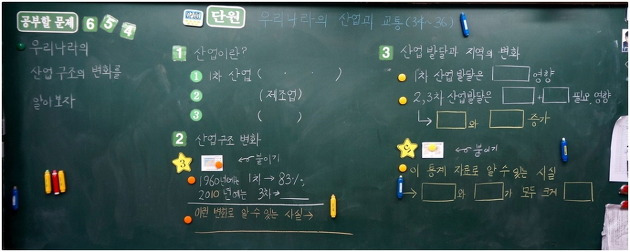 공부할 문제
6 5 4
우리나라의
산업 구조의 변화를
알아보자
단원 우리나라의 산업과 교통(34~36)
1 산업이란?
1 1차 산업 ( · · )
2 (제조업)
3 ( )
2 산업구조 변화
3 붙이기
1960년에는 1차 → 83%
2010년에는 3차 →
이런 변화로 알 수 있는 사실 →
3 산업 발달과 지역의 변화
1차 산업 발달은 영향
2,3차 산업발달은 + 필요, 영향
와 증가
붙이기
이 통계 자료로 알 수 있는 사실
→ 와 가 모두 크게